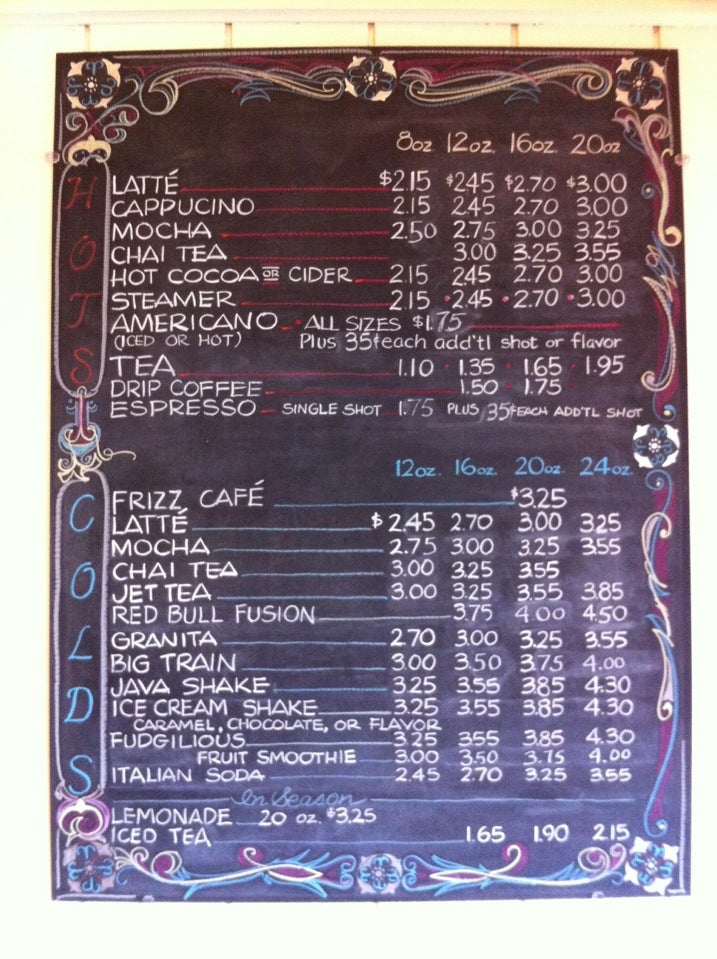 HOTS
8oz 12oz. 16oz. 20oz
LATTÉ $2.15 $2.45 $2.70 $3.00
CAPPUCINO 2.15 2.45 2.70 3.00
MOCHA 2.50 2.75 3.00 3.25
CHAI TEA 3.00 3.25 3.55
HOT COCOA OR CIDER 2.15 2.45 2.70 3.00
STEAMER 2.15 2.45 2.70 3.00
AMERICANO ALL SIZES $1.75
(ICED OR HOT) Plus 35¢ each add'tl shot or flavor
TEA 1.10 1.35 1.65 1.95
DRIP COFFEE 1.50 1.75
ESPRESSO SINGLE SHOT 1.75 PLUS 35¢ EACH ADD'TL SHOT
COLDS
12oz. 16oz. 20oz. 24oz.
FRIZZ CAFÉ $3.25
LATTÉ $2.45 2.70 3.00 3.25
MOCHA 2.75 3.00 3.25 3.55
CHAI TEA 3.00 3.25 3.55
JET TEA 3.00 3.25 3.55 3.85
RED BULL FUSION 3.75 4.00 4.50
GRANITA 2.70 3.00 3.25 3.55
BIG TRAIN 3.00 3.50 3.75 4.00
JAVA SHAKE 3.25 3.55 3.85 4.30
ICE CREAM SHAKE 3.25 3.55 3.85 4.30
CARAMEL, CHOCOLATE, OR FLAVOR
FUDGILIOUS 3.25 3.55 3.85 4.30
FRUIT SMOOTHIE 3.00 3.50 3.75 4.00
ITALIAN SODA 2.45 2.70 3.25 3.55
In Season
LEMONADE 20 oz. $3.25
ICED TEA 1.65 1.90 2.15